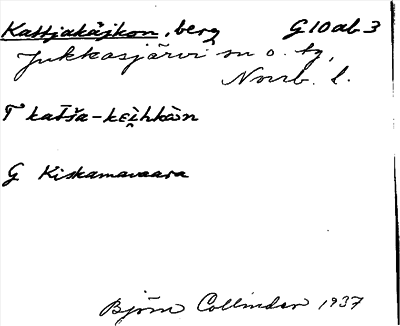 Kattjakåjkon, berg G10ab3
Jukkasjärvi sn o. tg,
Norrb. l.
T katša-kɛi̯hkὰn
G Kiskamavaara
Björn Collinder 1937